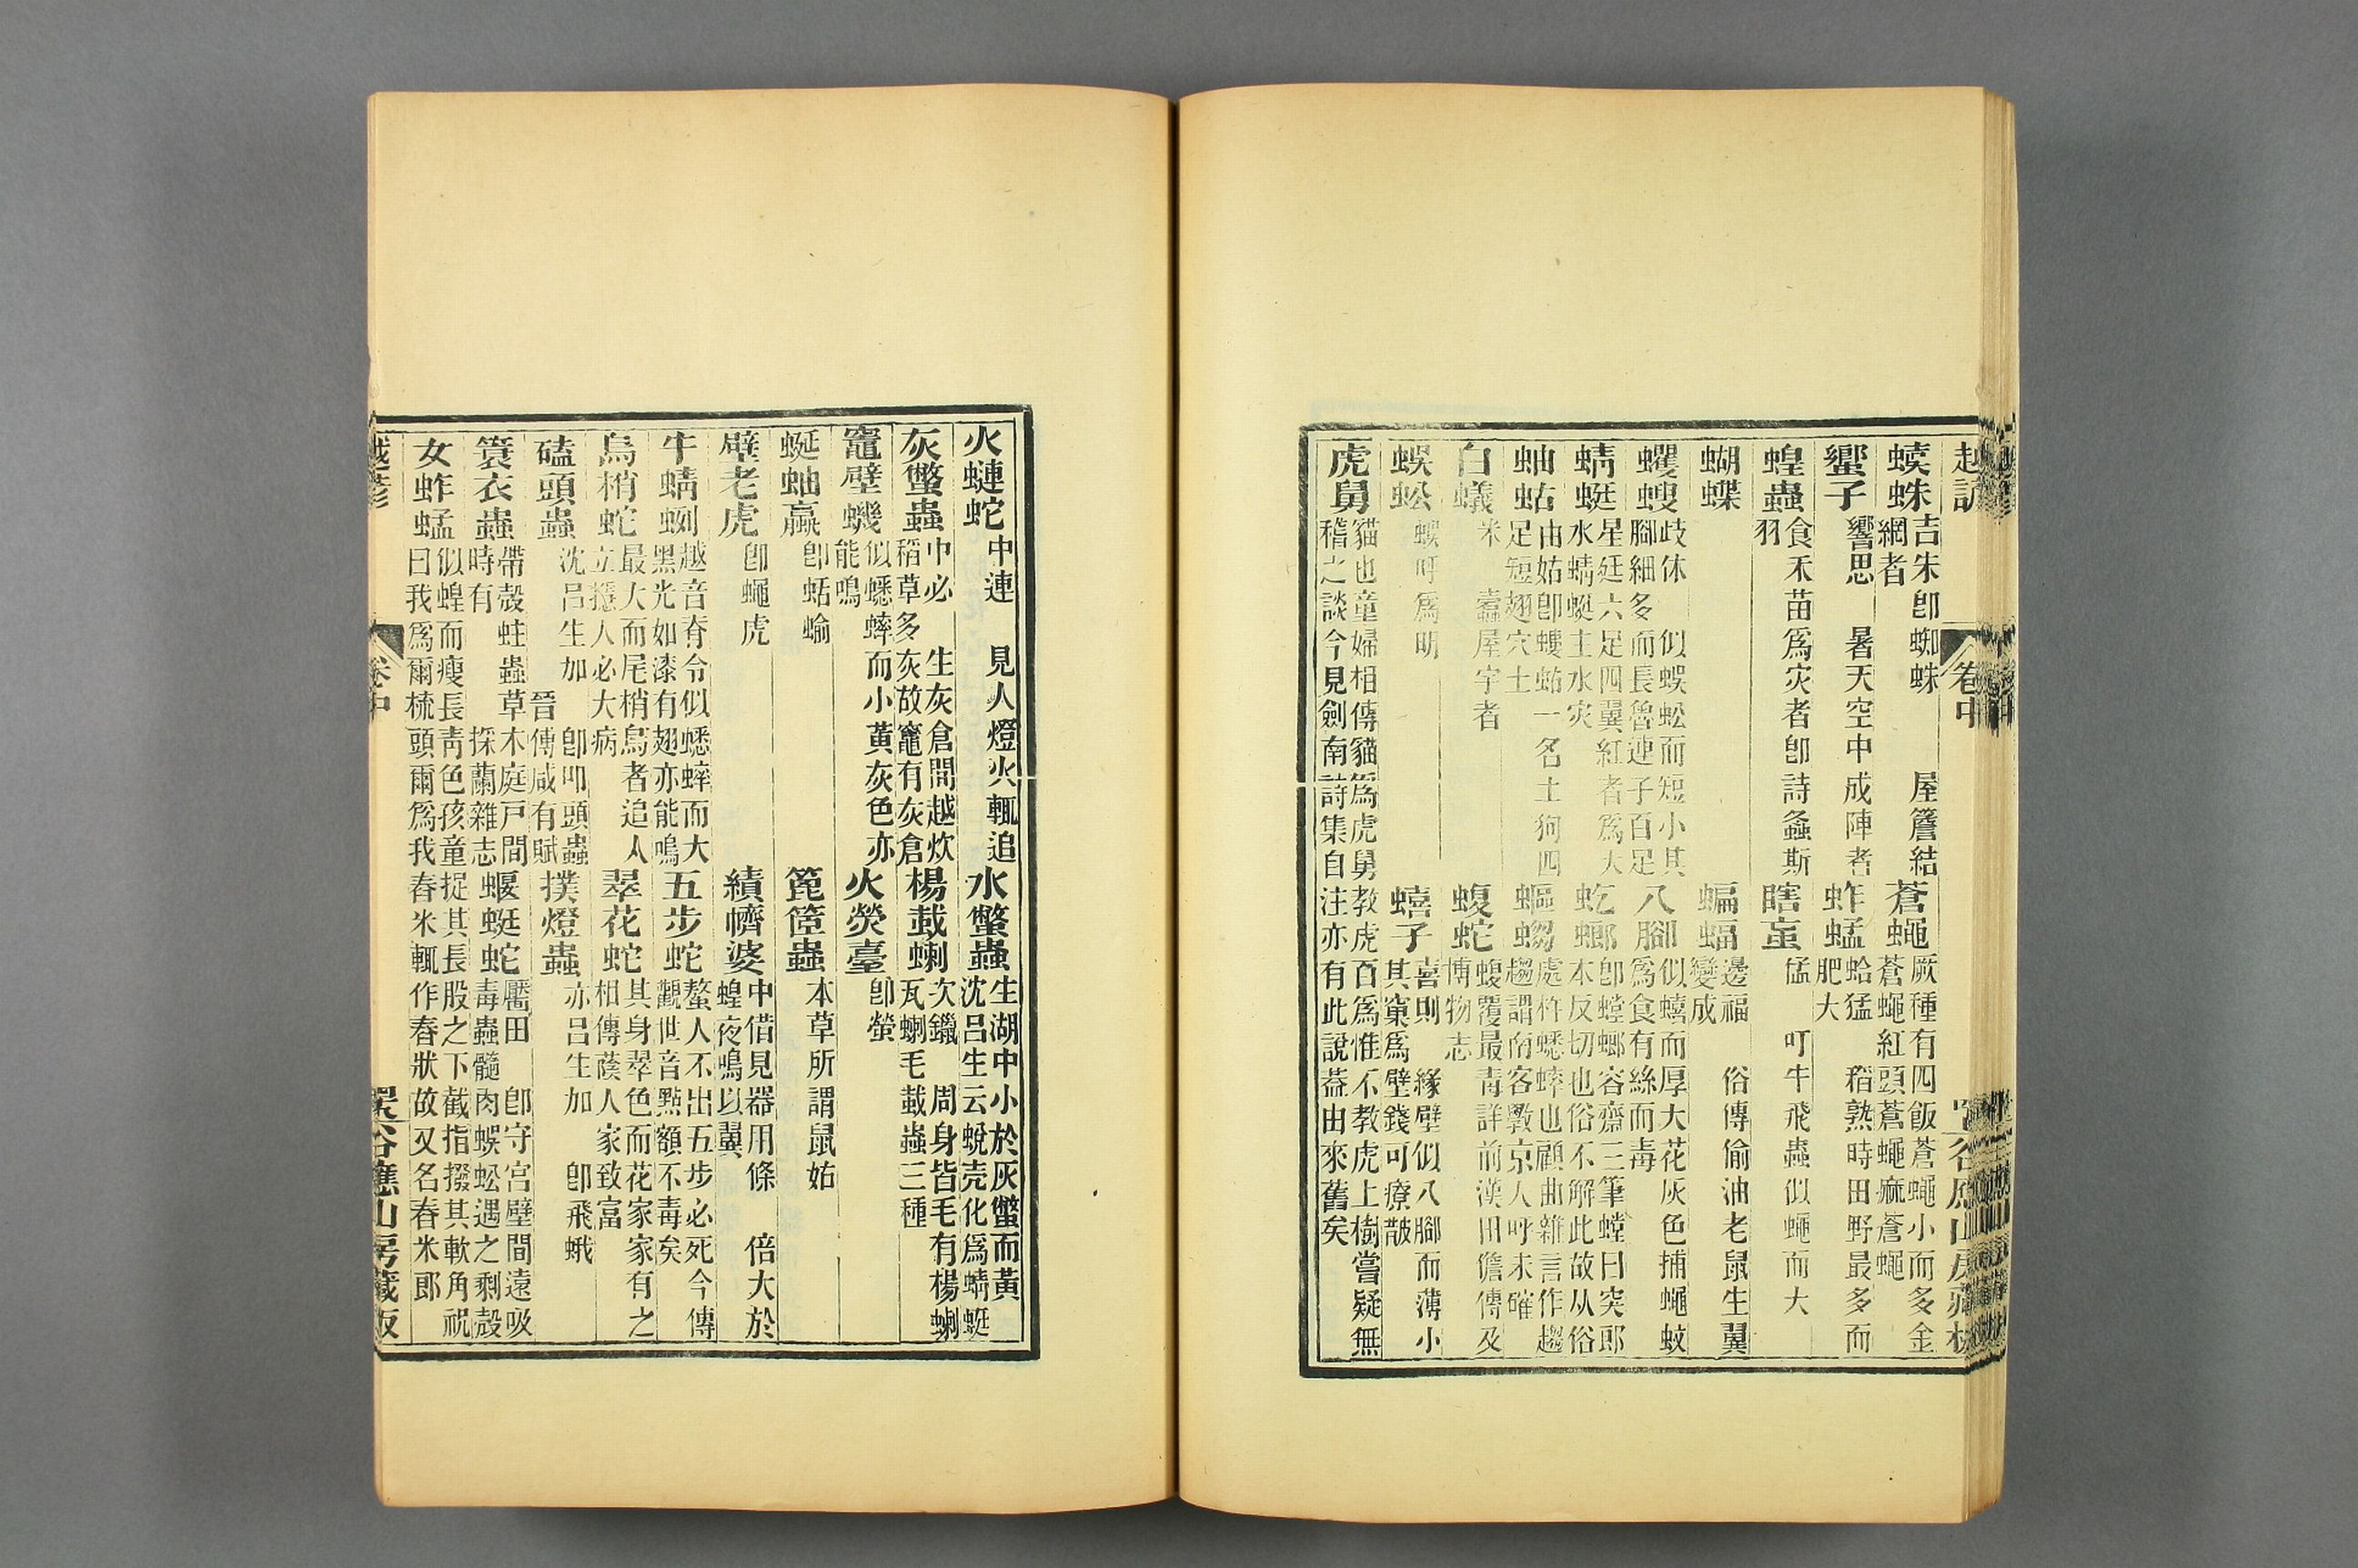 蟘蛛吉朱卽蜘蛛 屋簷結網者 蒼蠅厥種有四飯蒼蠅小而多金蒼蠅紅頭蒼蠅麻蒼蠅
蠁子響思 暑天空中成陣者 蚱蜢蛤猛 稻熟時田野最多而肥大
蝗蟲食禾苗爲灾者卽詩螽斯羽 瞎䖟猛 叮牛飛蟲似蠅而大
蝴蝶 蝙蝠邊福 俗傳偷油老鼠生翼變成
蠼螋歧休 似蜈蚣而短小其腳細多而長魯連子百足 八腳似蟢而厚大花灰色捕蠅蚊爲食有絲而毒
蜻蜓星廷六足四翼紅者爲大水蜻蜓主水灾 虼螂卽螳螂容齋三筆螳曰突郎本反切也俗不解此故从俗
蚰蛄由姑卽螻蛄一名土狗四足短翅穴土 蝹蝎處柞蟋蟀也顧曲雜言作趨趨謂南客斅京人呼未確
白蟻米 蠹屋宇者 蝮蛇蝮覆最毒詳前漢田儋傳及博物志
蜈蚣蜈呼爲明 蟢子喜則 緣壁似八腳而薄小其窠爲壁錢可療皵
虎舅貓也童婦相傳貓爲虎舅教虎百爲惟不教虎上樹嘗疑無稽之談今見劍南詩集自注亦有此說葢由來舊矣
卷中
火蝀蛇中連 見人燈火輒追 水蟞蟲生湖中小於灰蟞而黃沈呂生云蛻壳化爲蜻蜓
灰蟞蟲中必 生灰倉間越炊稻草多灰故竈有灰倉 楊蛓蝲次鑞 周身皆毛有楊蝲瓦蝲毛蛓蟲三種
竈壁蟣似蟋蟀而小黃灰色亦能鳴 火熒臺卽螢
蜒蚰蠃卽蛞蝓 箆箜蟲本草所謂鼠姑
壁老虎卽蠅虎 績㡭婆中借見器用條 倍大於蝗夜鳴以翼
牛蜻蛚越音脊令似蟋蟀而大黑光如漆有翅亦能鳴 五步蛇螯人不出五步必死今傳觀世音㸃額不毒矣
烏梢蛇最大而尾梢烏者追人立攇人必大病 翠花蛇其身翠色而花家家有之相傳蔭人家致富
磕頭蟲沈呂生加 卽叩頭蟲晉傅咸有賦 撲燈蟲亦呂生加 卽飛蛾
簑衣蟲帶殼蛀蟲草木庭戶間時有 採蘭雜志 蝘蜓蛇靨田 卽守宮壁間遠吸毒蟲髓肉蜈蚣遇之剩殼
女蚱蜢似蝗而瘦長靑色孩童捉其長股之下截指掇其軟角祝曰我爲爾梳頭爾爲我舂米輒作舂狀故又名舂米郎
越諺
卷中
谷應山房藏版